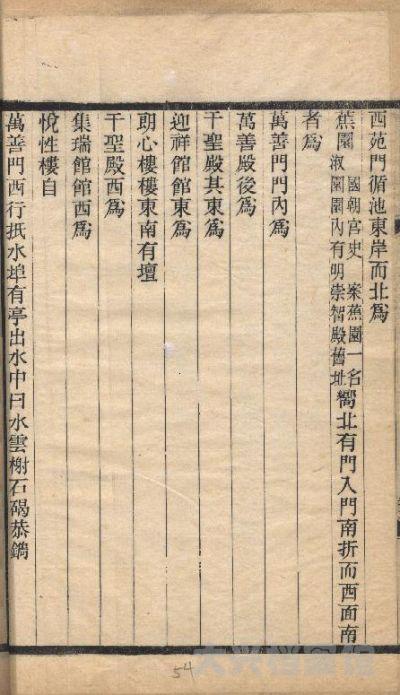 西苑門循池東岸而北爲
蕉園
國朝宮史 案蕉園一名
淑園園內有明崇智殿舊址
嚮北有門入門南折而西面南
者爲
萬善門門內爲
萬善殿後爲
千聖殿其東爲
迎祥館館東爲
朗心樓樓東南有壇
千聖殿西爲
集瑞館館西爲
悅性樓自
萬善門西行抵水埠有亭出水中曰水雲榭石碣恭鐫
54